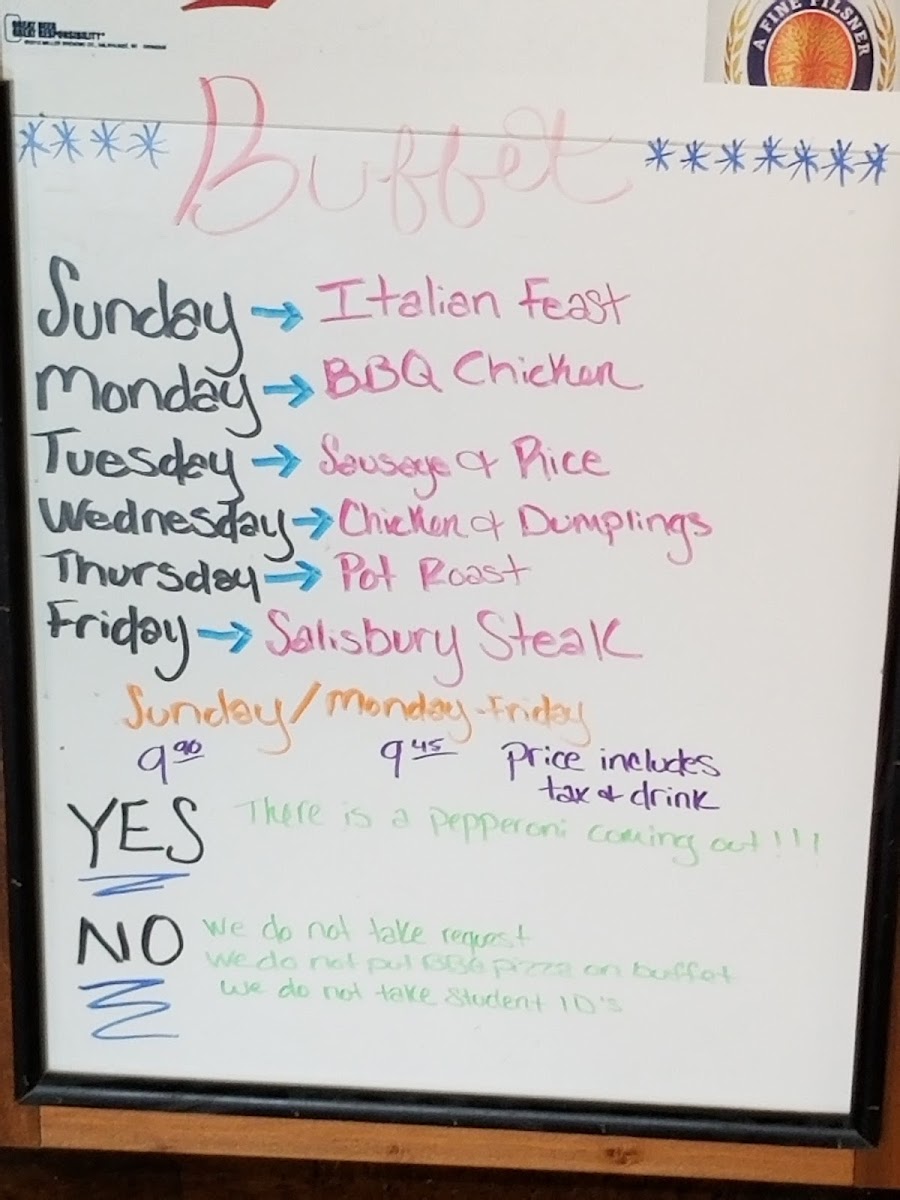 GREAT BEER
GREAT RESPONSIBILITY®
A FINE PILSNER
**** Buffet *******
Sunday → Italian Feast
Monday → BBQ Chicken
Tuesday → Sausage & Rice
Wednesday → Chicken & Dumplings
Thursday → Pot Roast
Friday → Salisbury Steak
Sunday/Monday-Friday
9.90 9.45 Price includes
tax & drink
YES There is a pepperoni coming out!!!
NO We do not take request
We do not put BBQ pizza on buffet
We do not take Student ID's